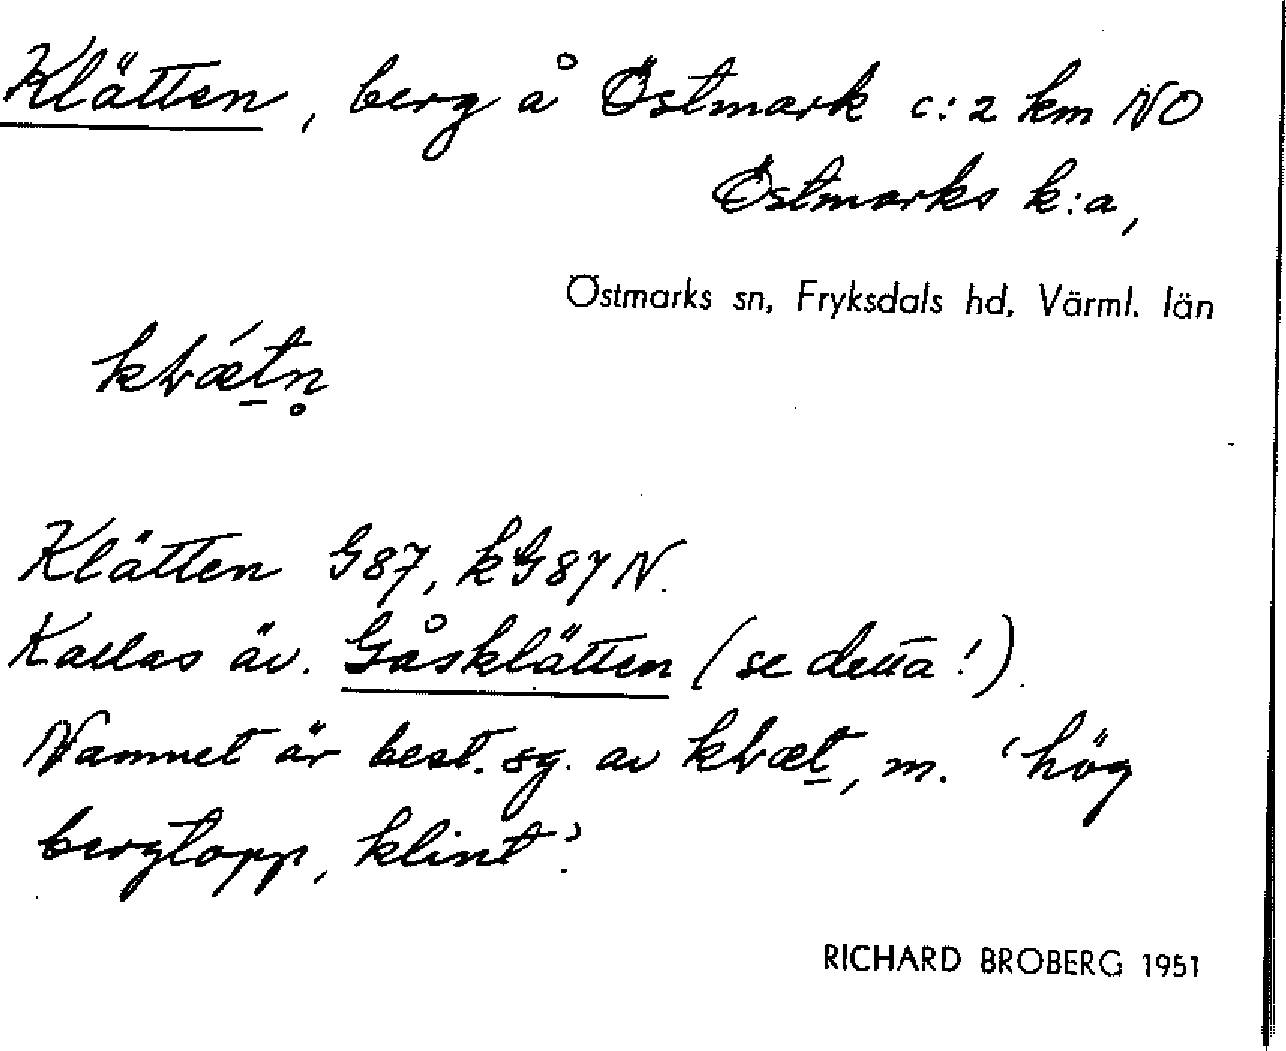 Klätten, berg å Östmark c:2 km NO
Östmarks k:a,
Östmarks sn, Fryksdals hd, Värml. län
Klätten G87, kG87N.
Kallas äv. Gåsklätten (se detta!).
Namnet är best. sg. av kɫæt̲, m. 'hög
bergtopp, klint'.
RICHARD BROBERG 1951